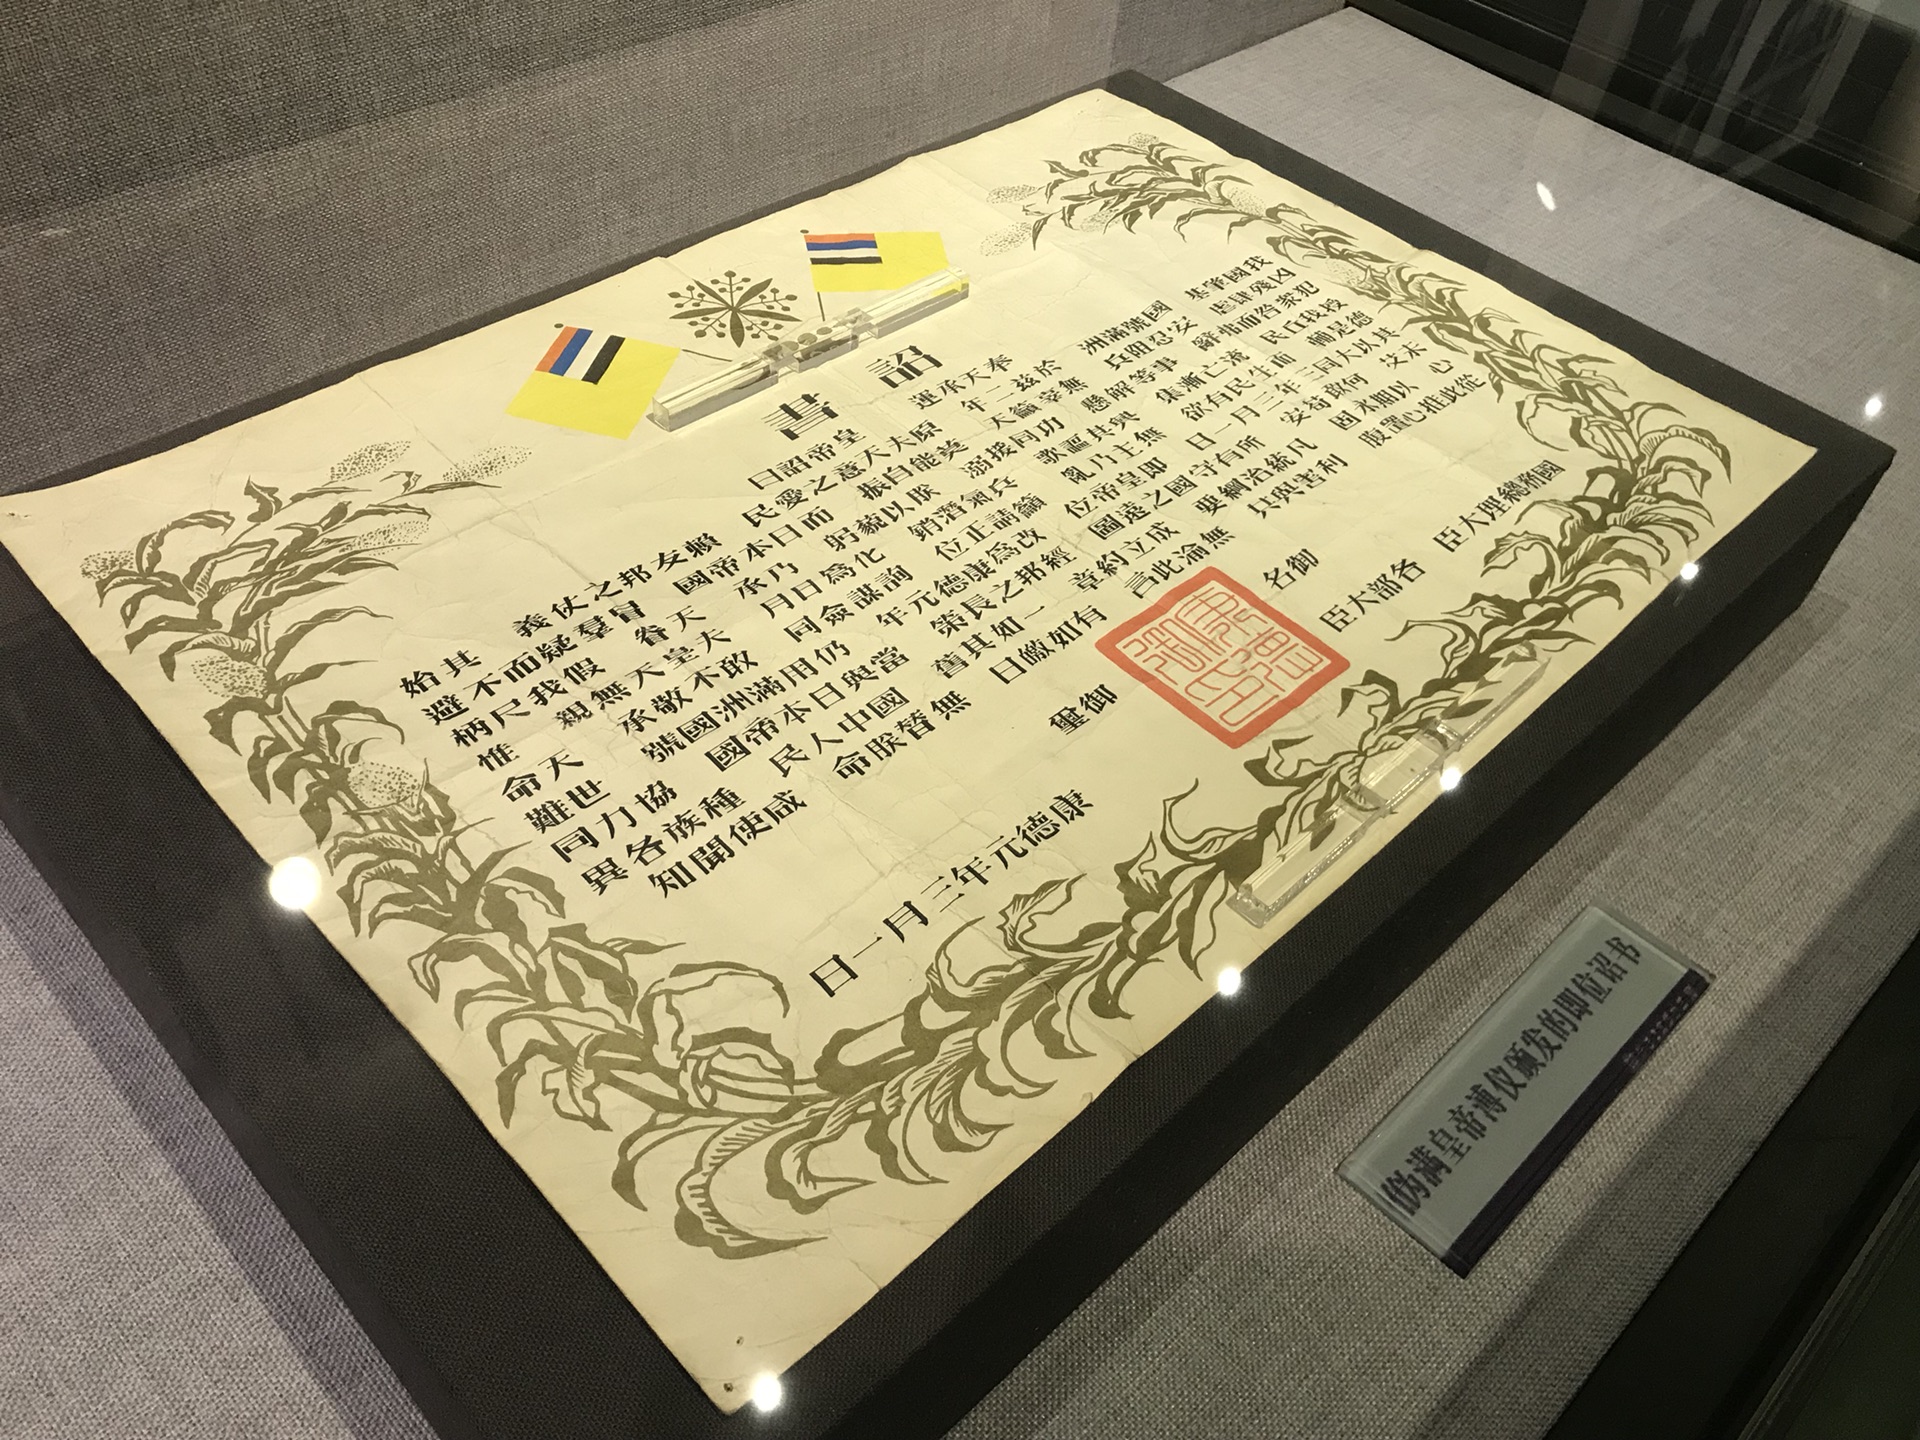 詔書
奉天承運 皇帝詔曰
我國肇基 國號滿洲 於茲二年 原夫天意之愛民 賴友邦之仗義 其始
凶殘肆虐 安忍阻兵 無辜籲天 莫能自振 而日本帝國 冒羣疑而不避
犯眾咎而弗辭 事等解懸 功同援溺 朕以藐躬 乃承天眷 假我尺柄
授我丘民 流亡漸集 興其謳歌 兵氣潛銷 化為日月 夫皇天無親 惟
德是輔 而生民有欲 無主乃亂 籲請正位 詢謀僉同 敢不敬承天命
其以大同三年三月一日 即皇帝位 改為康德元年 仍用滿洲國號 世難
未艾 何敢苟安 所有守國之遠圖 經邦之長策 當與日本帝國 協力同
心 以期永固 凡統治綱要 成立約章 一如其舊 國中人民 種族各異
從此推心置腹 利害與共 無渝此言 有如皦日 無替朕命 咸使聞知
御名 御璽
康德元年三月一日
國務總理大臣
各部大臣
伪满皇帝溥仪颁发的即位诏书